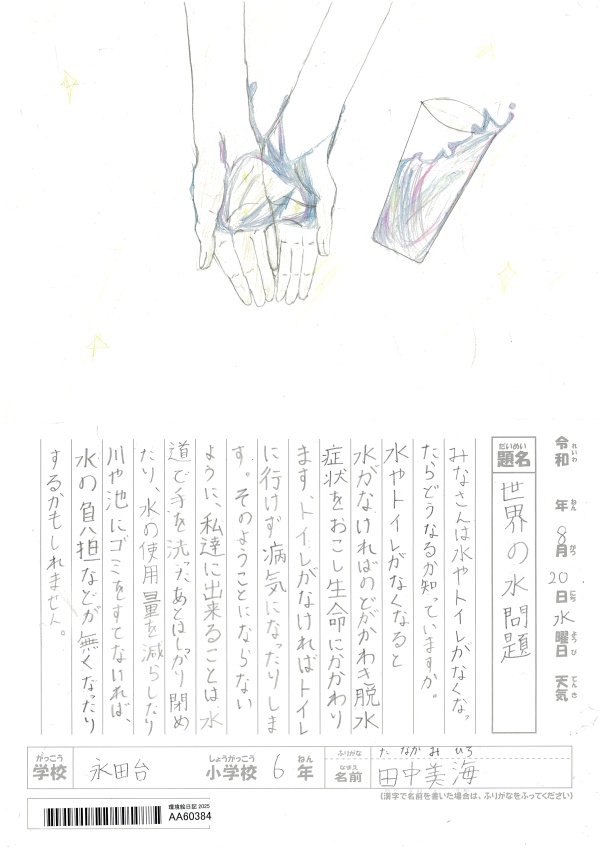 令和 年 8月 20日 水曜日 天気
れいわ ねん がつ にち ようび てんき
だいめい
題名
世界の水問題
みなさんは水やトイレがなくなっ
たらどうなるか知っていますか。
水やトイレがなくなると
水がなければのどがかわき脱水
症状をおこし生命にかかわり
ます、トイレがなければトイレ
に行けず病気になったりしま
す。そのようことにならない
ように、私達に出来ることは、水
道で手を洗ったあとはしっかり閉め
たり、水の使用量を減らしたり
川や池にゴミをすてないければ、
水の負担などが無くなったり
するかもしれません。
がっこう しょうがっこう ねん
学校 永田台 小学校 6年
ふりがな た なか み ひろ
なまえ
名前 田中美海
(漢字で名前を書いた場合は、ふりがなをふってください)
環境絵日記 2025
AA60384